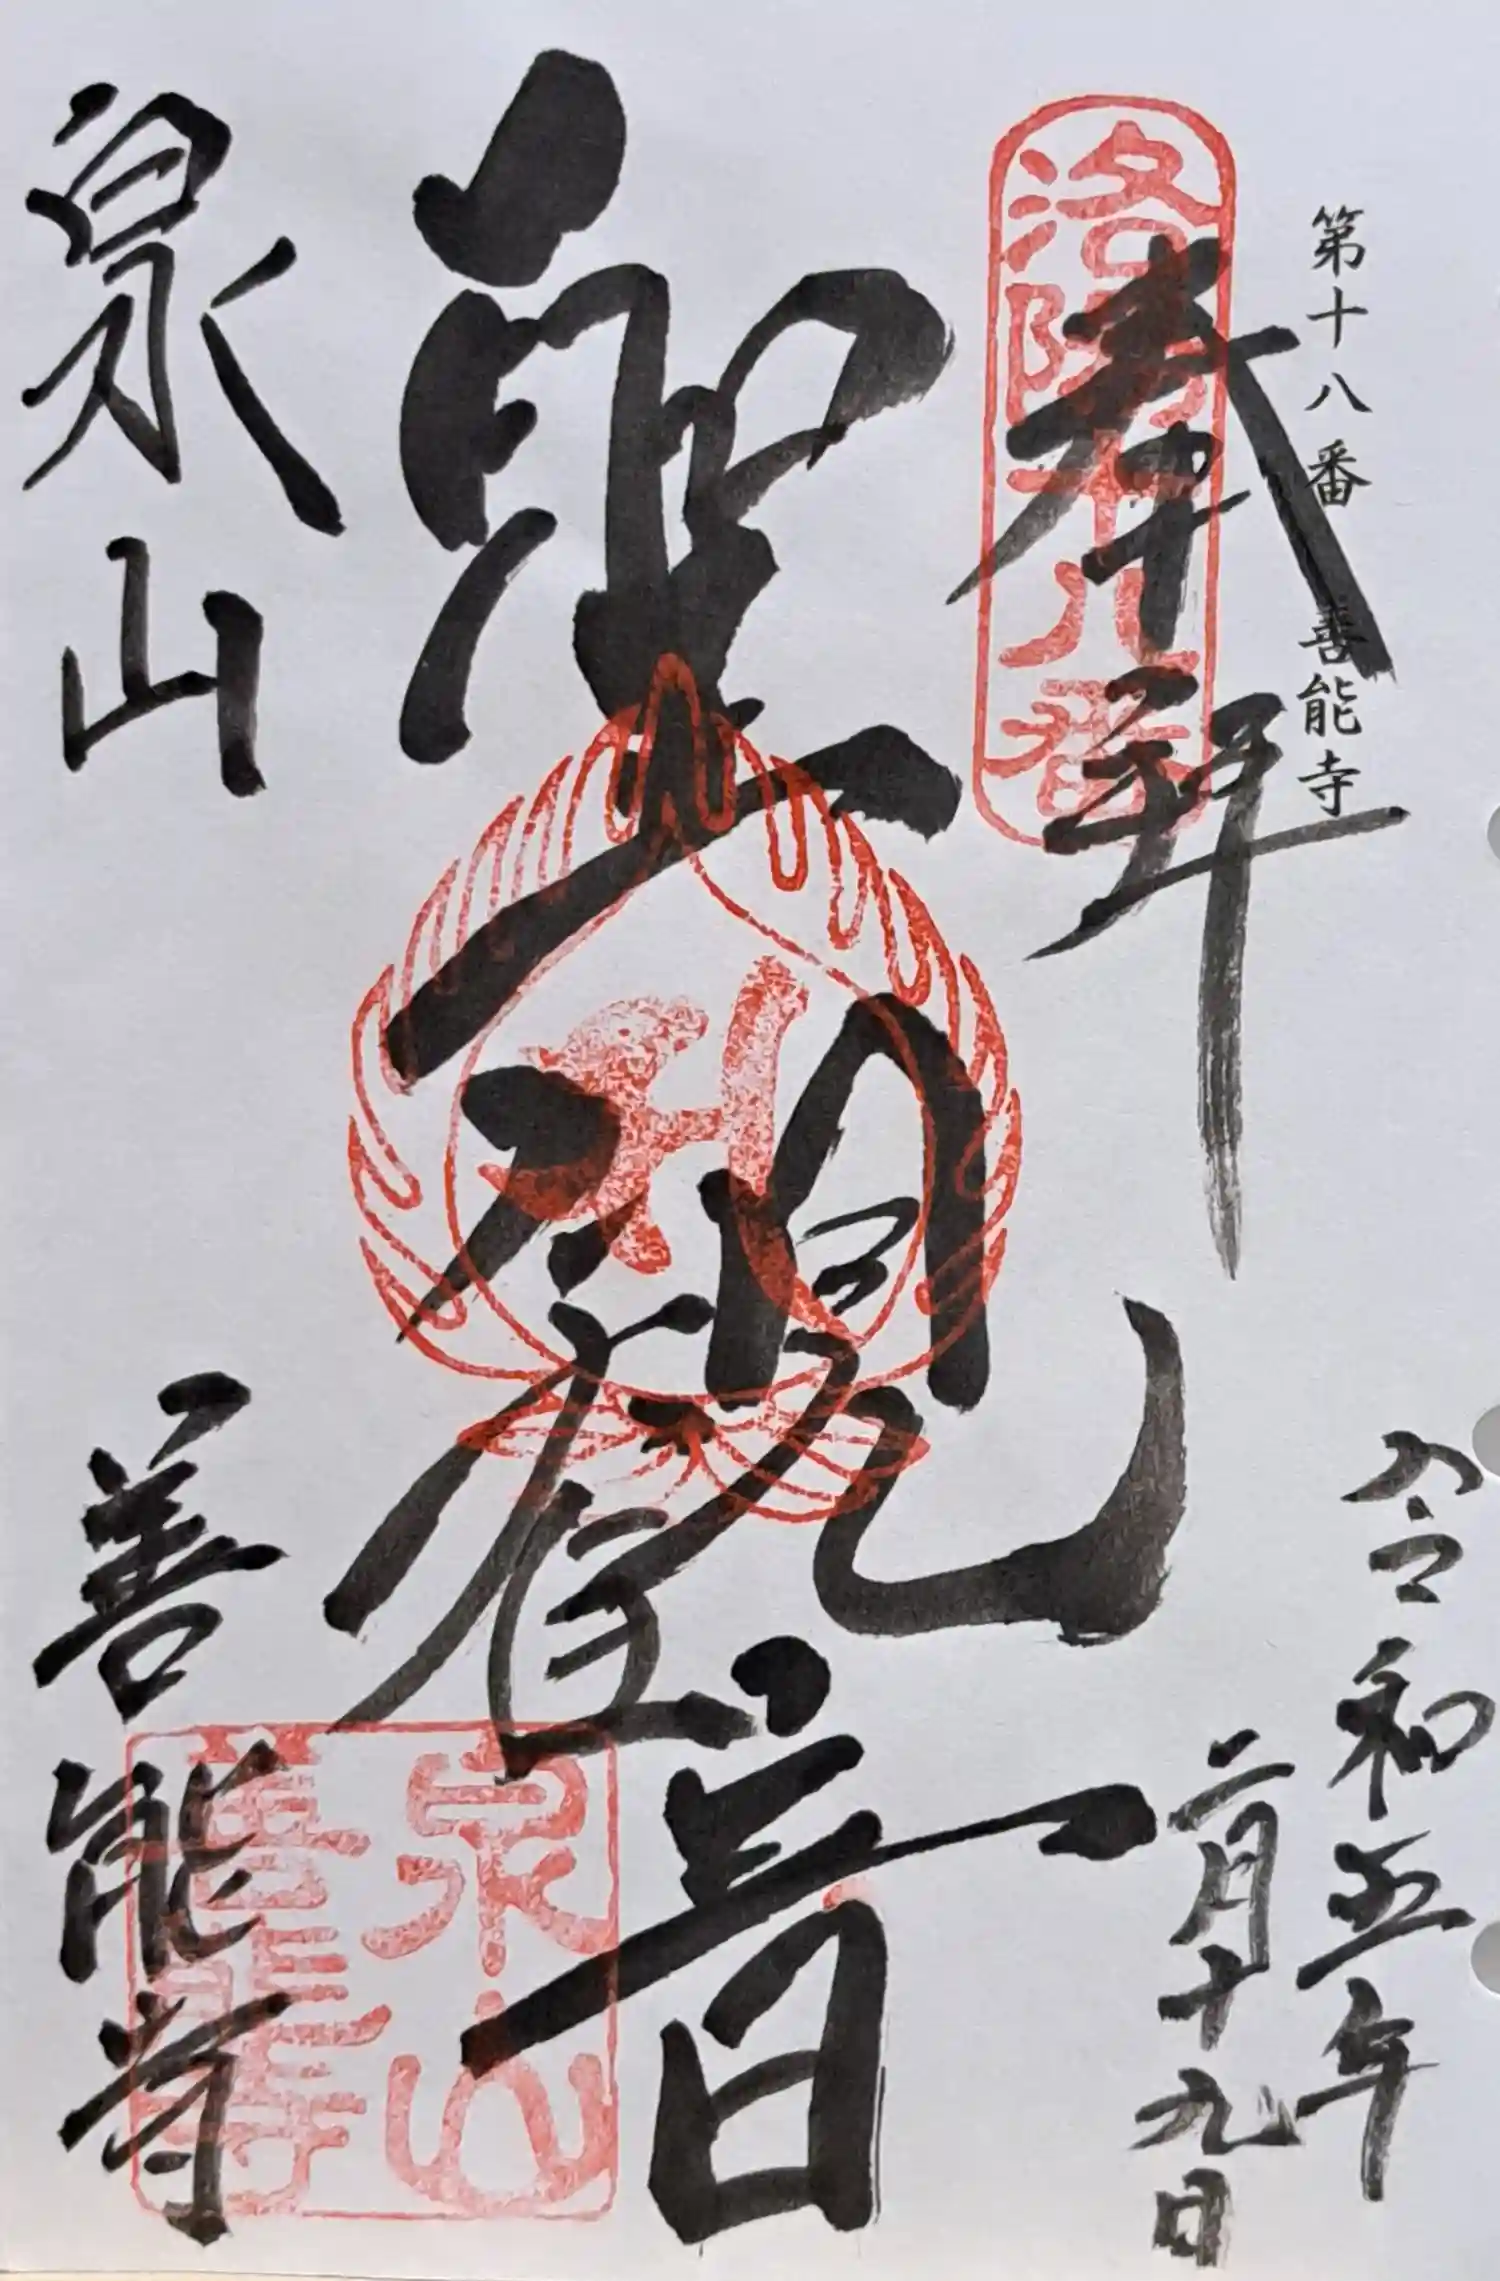 第十八番 善能寺
奉拝
洛陽十八番
令和五年
二月十九日
聖観音
泉山
善能寺
泉山
善能寺